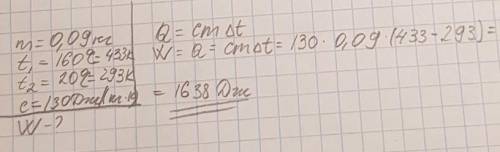 m = 0,09 кг
t₁ = 160°C = 433K
t₂ = 20°C = 293K
c = 130 Дж/кг·K
W - ?
Q = cmΔt
W = Q = cmΔt = 130 · 0,09 · (433 - 293) =
= 1638 Дж